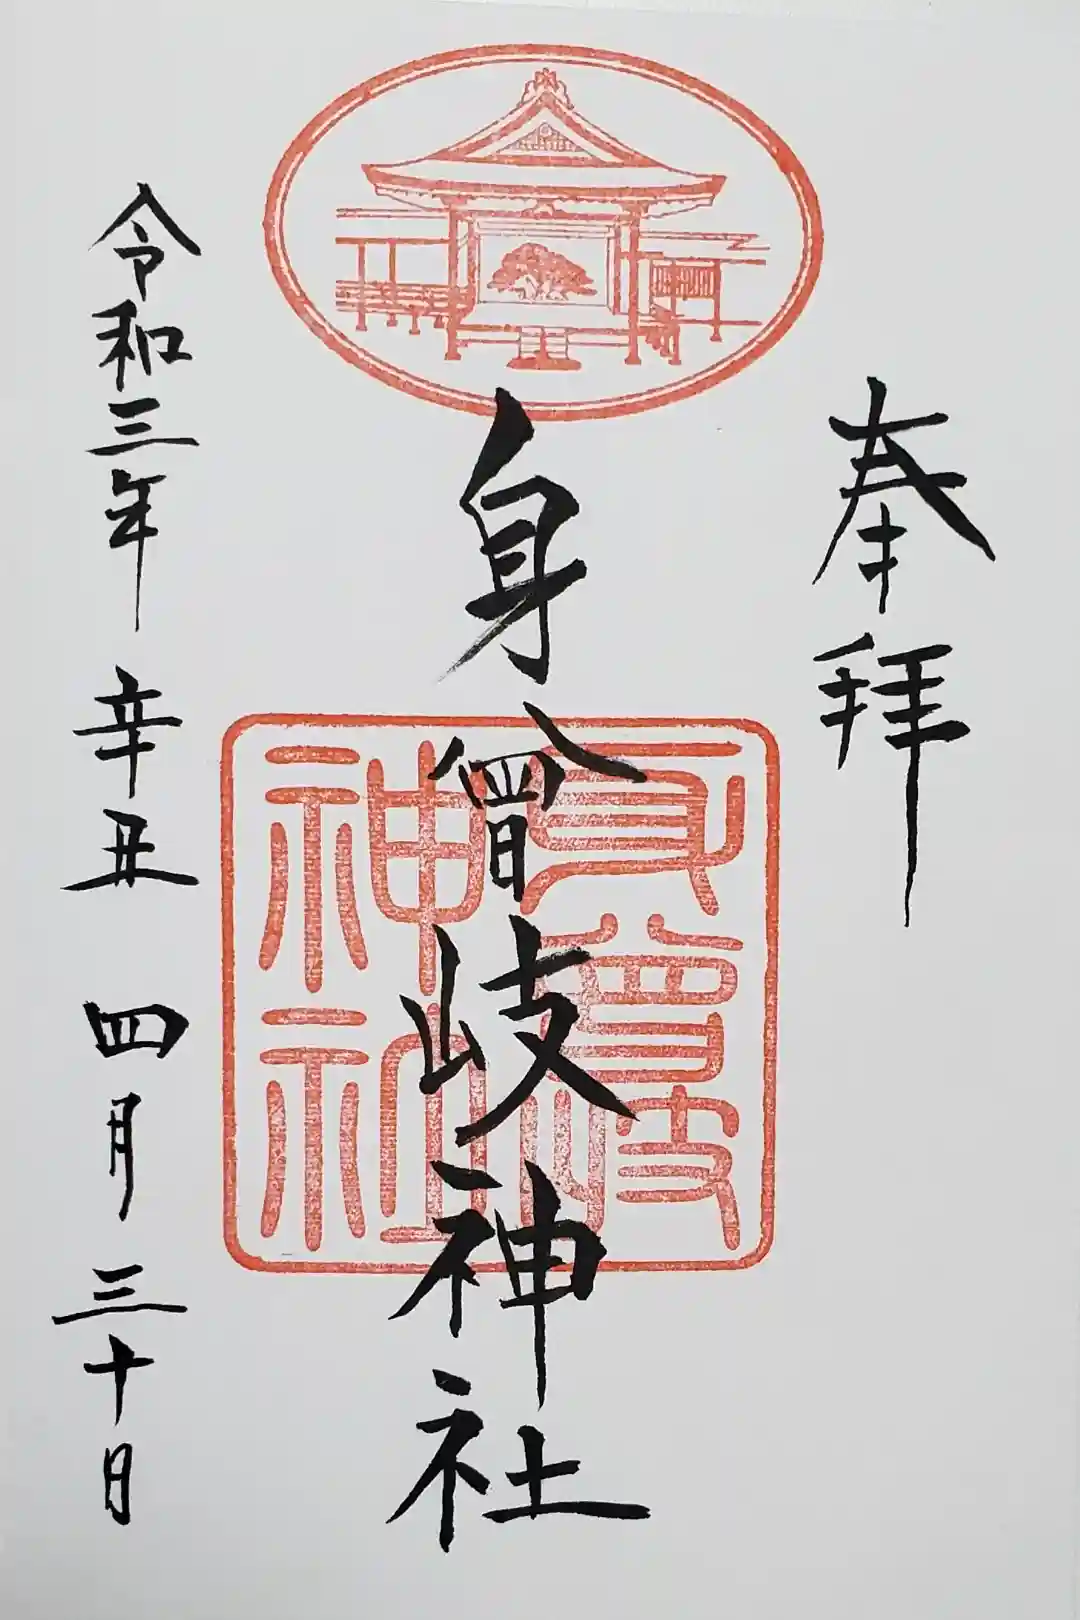 奉拝
身曾岐神社
身曾岐神社
令和三年 辛丑 四月 三十日